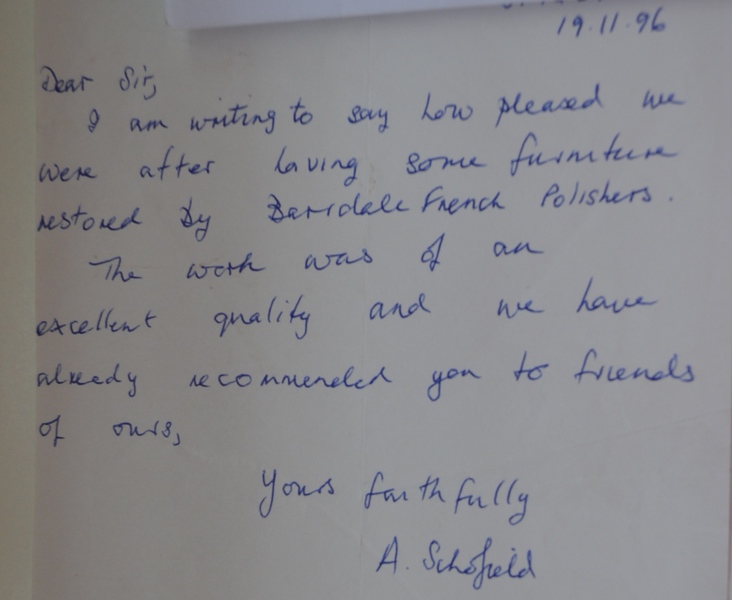 19.11.96
Dear Sir,
I am writing to say how pleased we
were after having some furniture
restored by Barrdale French Polishers.
The work was of an
excellent quality and we have
already recommended you to friends
of ours,
Yours faithfully
A. Schofield